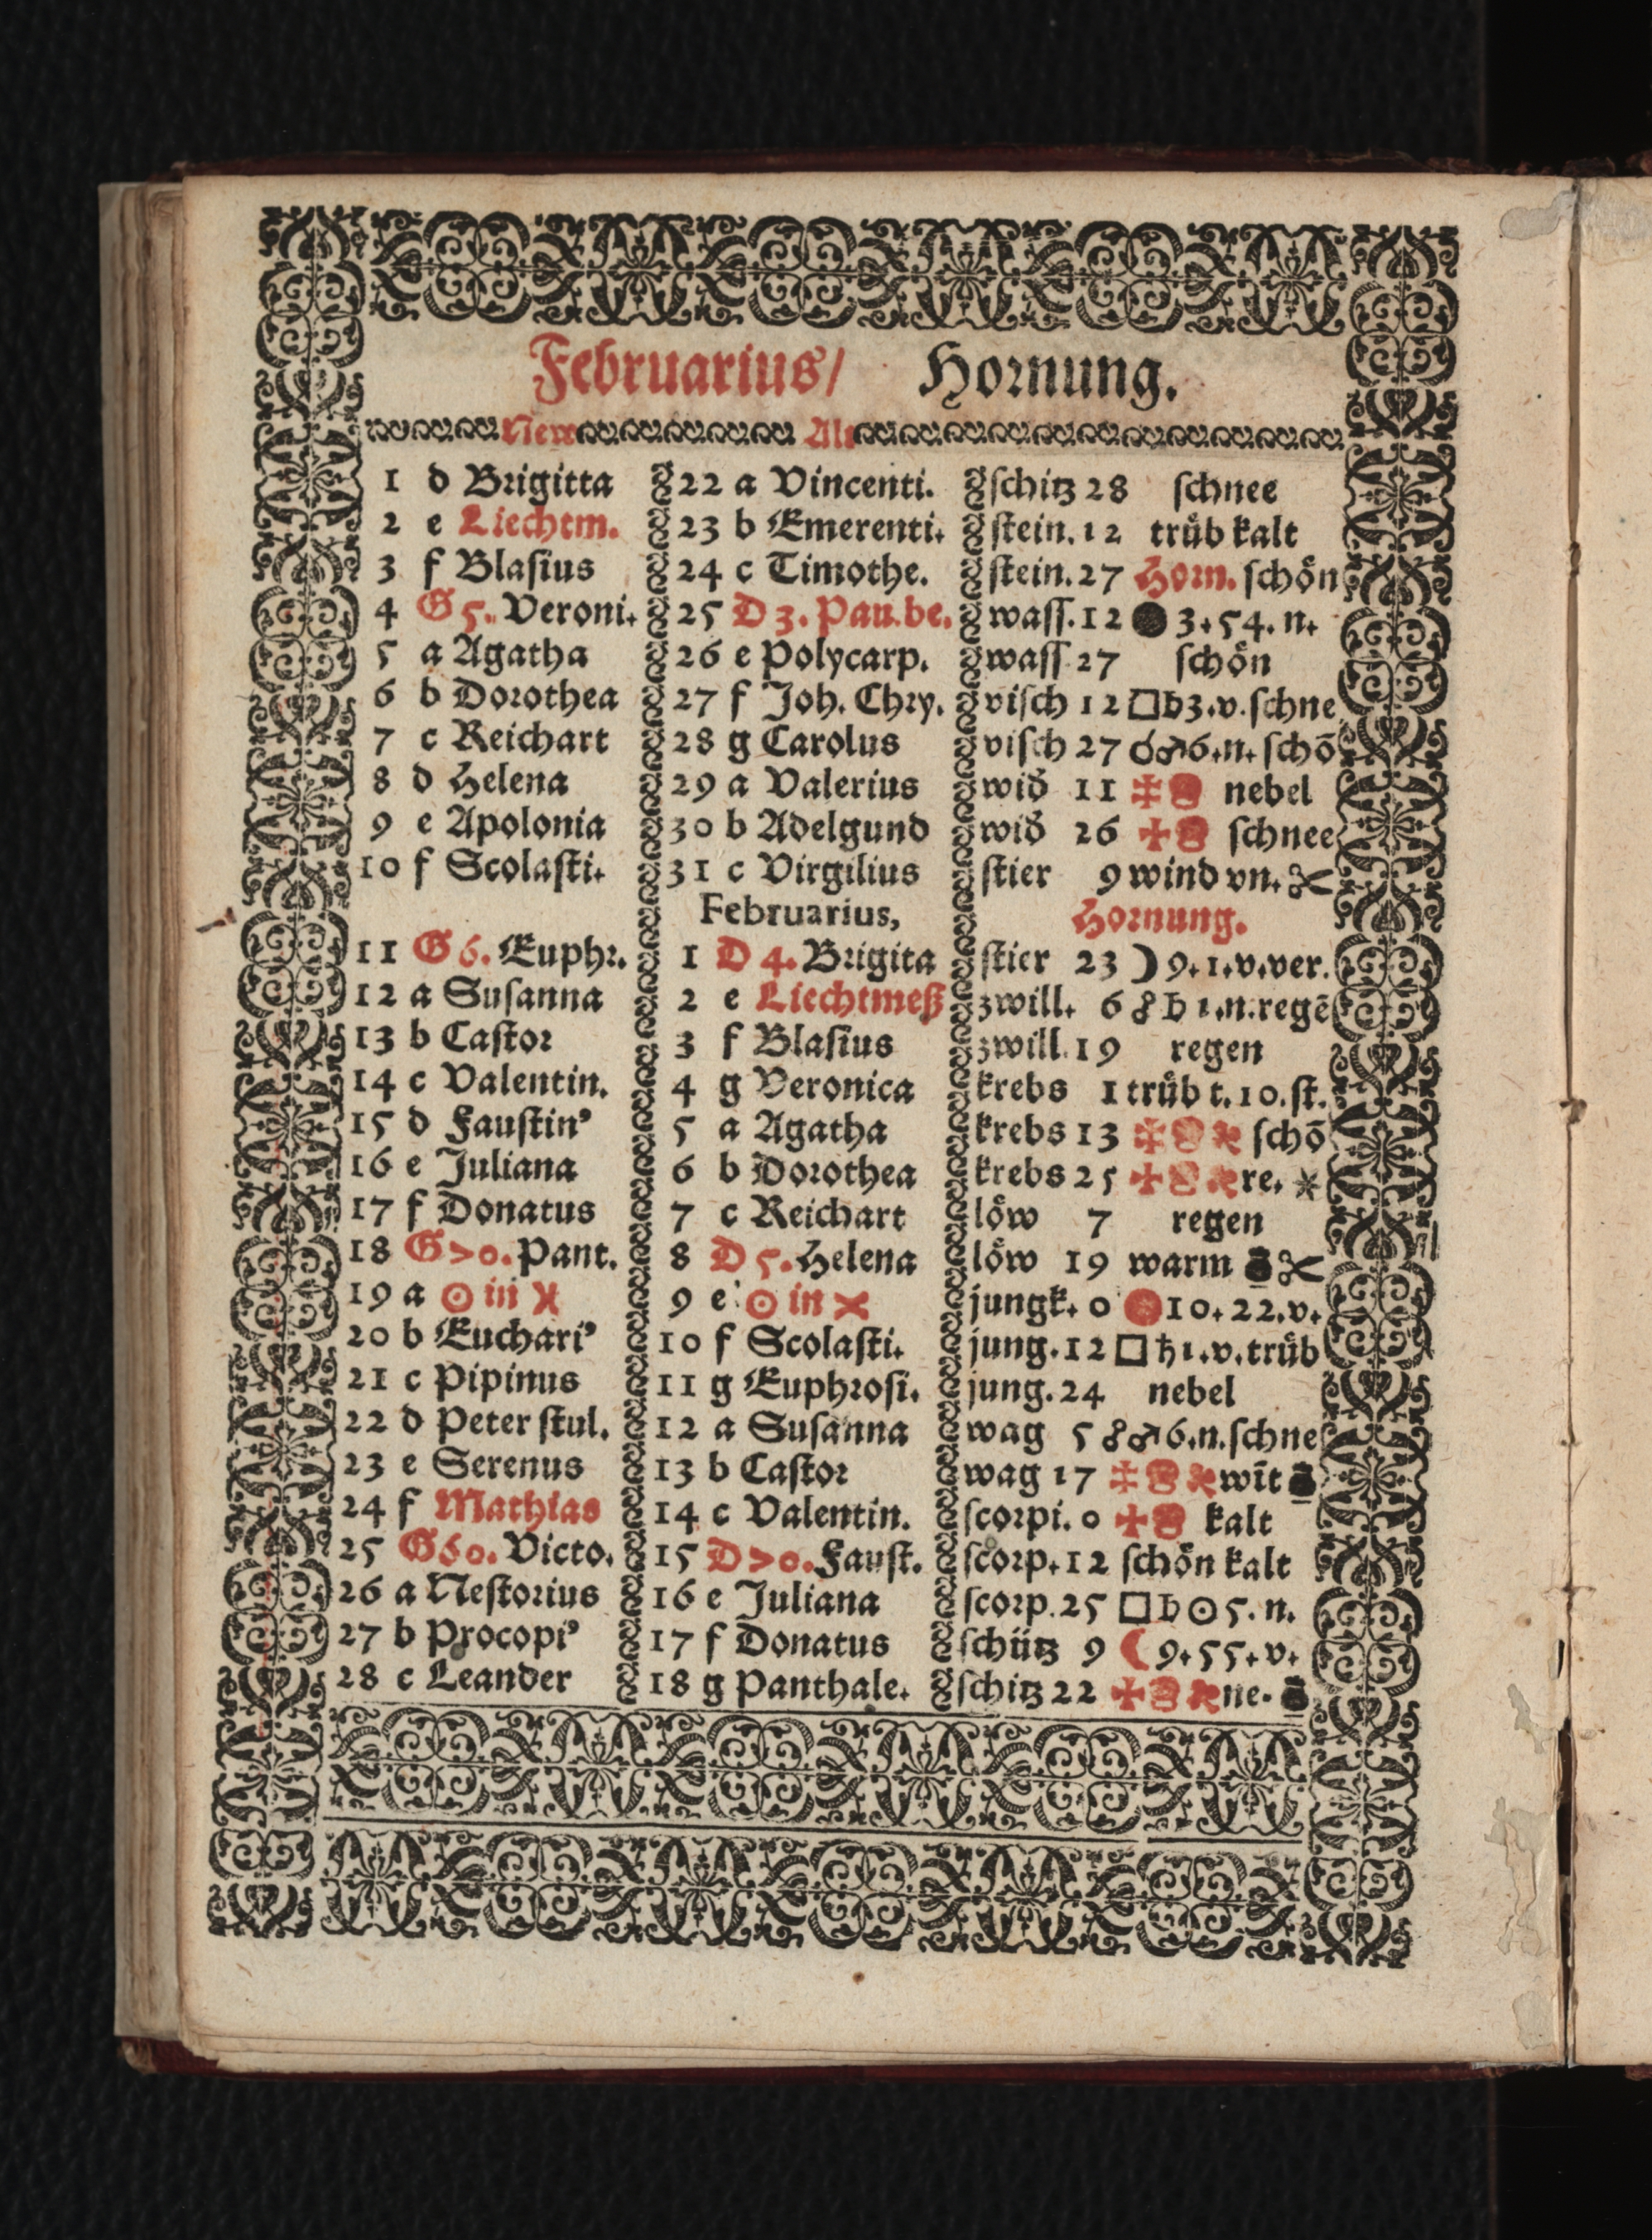 Februarius/ Hornung.
New Alt
1 d Brigitta 22 a Vincenti. ſchitz 28 ſchnee
2 e Liechtm. 23 b Emerenti. ſtein. 12 truͤb kalt
3 f Blaſius 24 c Timothe. ſtein. 27 Horn. ſchoͤn
4 G 5. Veroni. 25 D 3. Pau. be. waſſ. 12 ● 3. 54. n.
5 a Agatha 26 e Polycarp. waſſ. 27 ſchoͤn
6 b Dorothea 27 f Joh. Chry. viſch 12 □ ♄ 3. v. ſchne
7 c Reichart 28 g Carolus viſch 27 ☌ ♂ 6. n. ſchoͤ
8 d Helena 29 a Valerius wid 11 nebel
9 e Apolonia 30 b Adelgund wid 26 ſchnee
10 f Scolaſti. 31 c Virgilius ſtier 9 wind vn. ✂
Februarius, Hornung.
11 G 6. Euphr. 1 D 4. Brigita ſtier 23 ☽ 9. 1. v. ver.
12 a Suſanna 2 e Liechtmeß zwill. 6 ☍ ♄ 1. n. regē
13 b Caſtor 3 f Blaſius zwill. 19 regen
14 c Valentin. 4 g Veronica krebs 1 truͤb t. 10. ſt.
15 d Fauſtinꝰ 5 a Agatha krebs 13 ſchō
16 e Juliana 6 b Dorothea krebs 25 re. ✶
17 f Donatus 7 c Reichart loͤw 7 regen
18 G >o. Pant. 8 D 5. Helena loͤw 19 warm ✂
19 a ☉ in ♓ 9 e ☉ in ♓ jungk. 0 ● 10. 22. v.
20 b Euchariꝰ 10 f Scolaſti. jung. 12 □ ♄ 1. v. truͤb
21 c Pipinus 11 g Euphroſi. jung. 24 nebel
22 d Peter ſtul. 12 a Suſanna wag 5 ☍ ♂ 6. n. ſchne
23 e Serenus 13 b Caſtor wag 17 wīt
24 f Mathias 14 c Valentin. ſcorpi. 0 kalt
25 G 60. Victo. 15 D >o. Fauſt. ſcorp. 12 ſchoͤn kalt
26 a Neſtorius 16 e Juliana ſcorp. 25 □ ♄ ☉ 5. n.
27 b Procopiꝰ 17 f Donatus ſchuͤtz 9 ☾ 9. 55. v.
28 c Leander 18 g Panthale. ſchitz 22 ne.